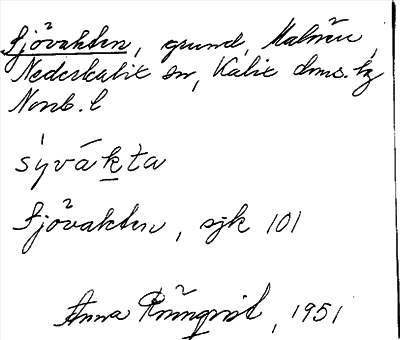 Sjövakten, grund, Malören,
Nederkalix sn, Kalix dms. tg
Norrb. l
syvákta
Sjövakten, sjk 101
Anna Rönnqvist, 1951